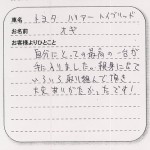 車名 トヨタ ハリアーハイブリッド
お名前 大井
お客様よりひとこと
自分にとっての最高の一台が
手に入りました。親身になって
いろいろ取り組んで頂き
大変ありがたかったです!